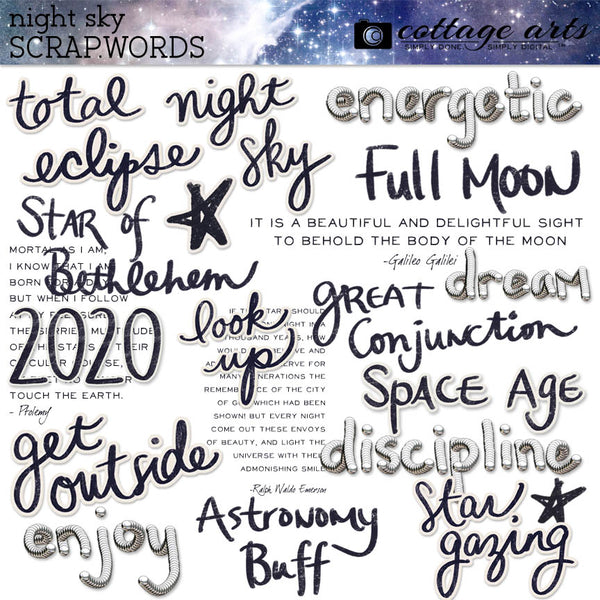 night sky
SCRAP.WORDS
cottage arts
SIMPLY DONE. SIMPLY DIGITAL.™
total
eclipse
night
sky
energetic
Full Moon
STAR of
Bethlehem
IT IS A BEAUTIFUL AND DELIGHTFUL SIGHT
TO BEHOLD THE BODY OF THE MOON
-Galileo Galilei
MORTAL AS I AM,
I KNOW THAT I AM
BORN FOR A DAY
BUT WHEN I FOLLOW
AT PLEASURE
THE SERRIED MULTITUDE
OF THE STARS IN THEIR
CIRCULAR COURSE,
MY FEET NO LONGER
TOUCH THE EARTH.
- Ptolemy
2020
look
up
dream
GREAT
Conjunction
IF THE STARS SHOULD
NIGHT IN A
THOUSAND YEARS, HOW
WOULD BELIEVE AND
ADORE PRESERVE FOR
MANY GENERATIONS THE
REMEMBRANCE OF THE CITY
OF GOD WHICH HAD BEEN
SHOWN! BUT EVERY NIGHT
COME OUT THESE ENVOYS
OF BEAUTY, AND LIGHT THE
UNIVERSE WITH THEIR
ADMONISHING SMILE
-Ralph Waldo Emerson
SPACE AGE
discipline
get
outside
enjoy
Astronomy
Buff
Star
gazing